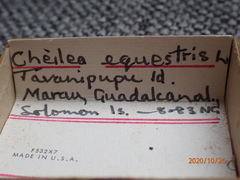 Cheilea equestris L.
Tavanipupu Id.
Marau, Guadalcanal,
Solomon Is. — 8-83 NG
F532X7
MADE IN U.S.A.
2020/10/26